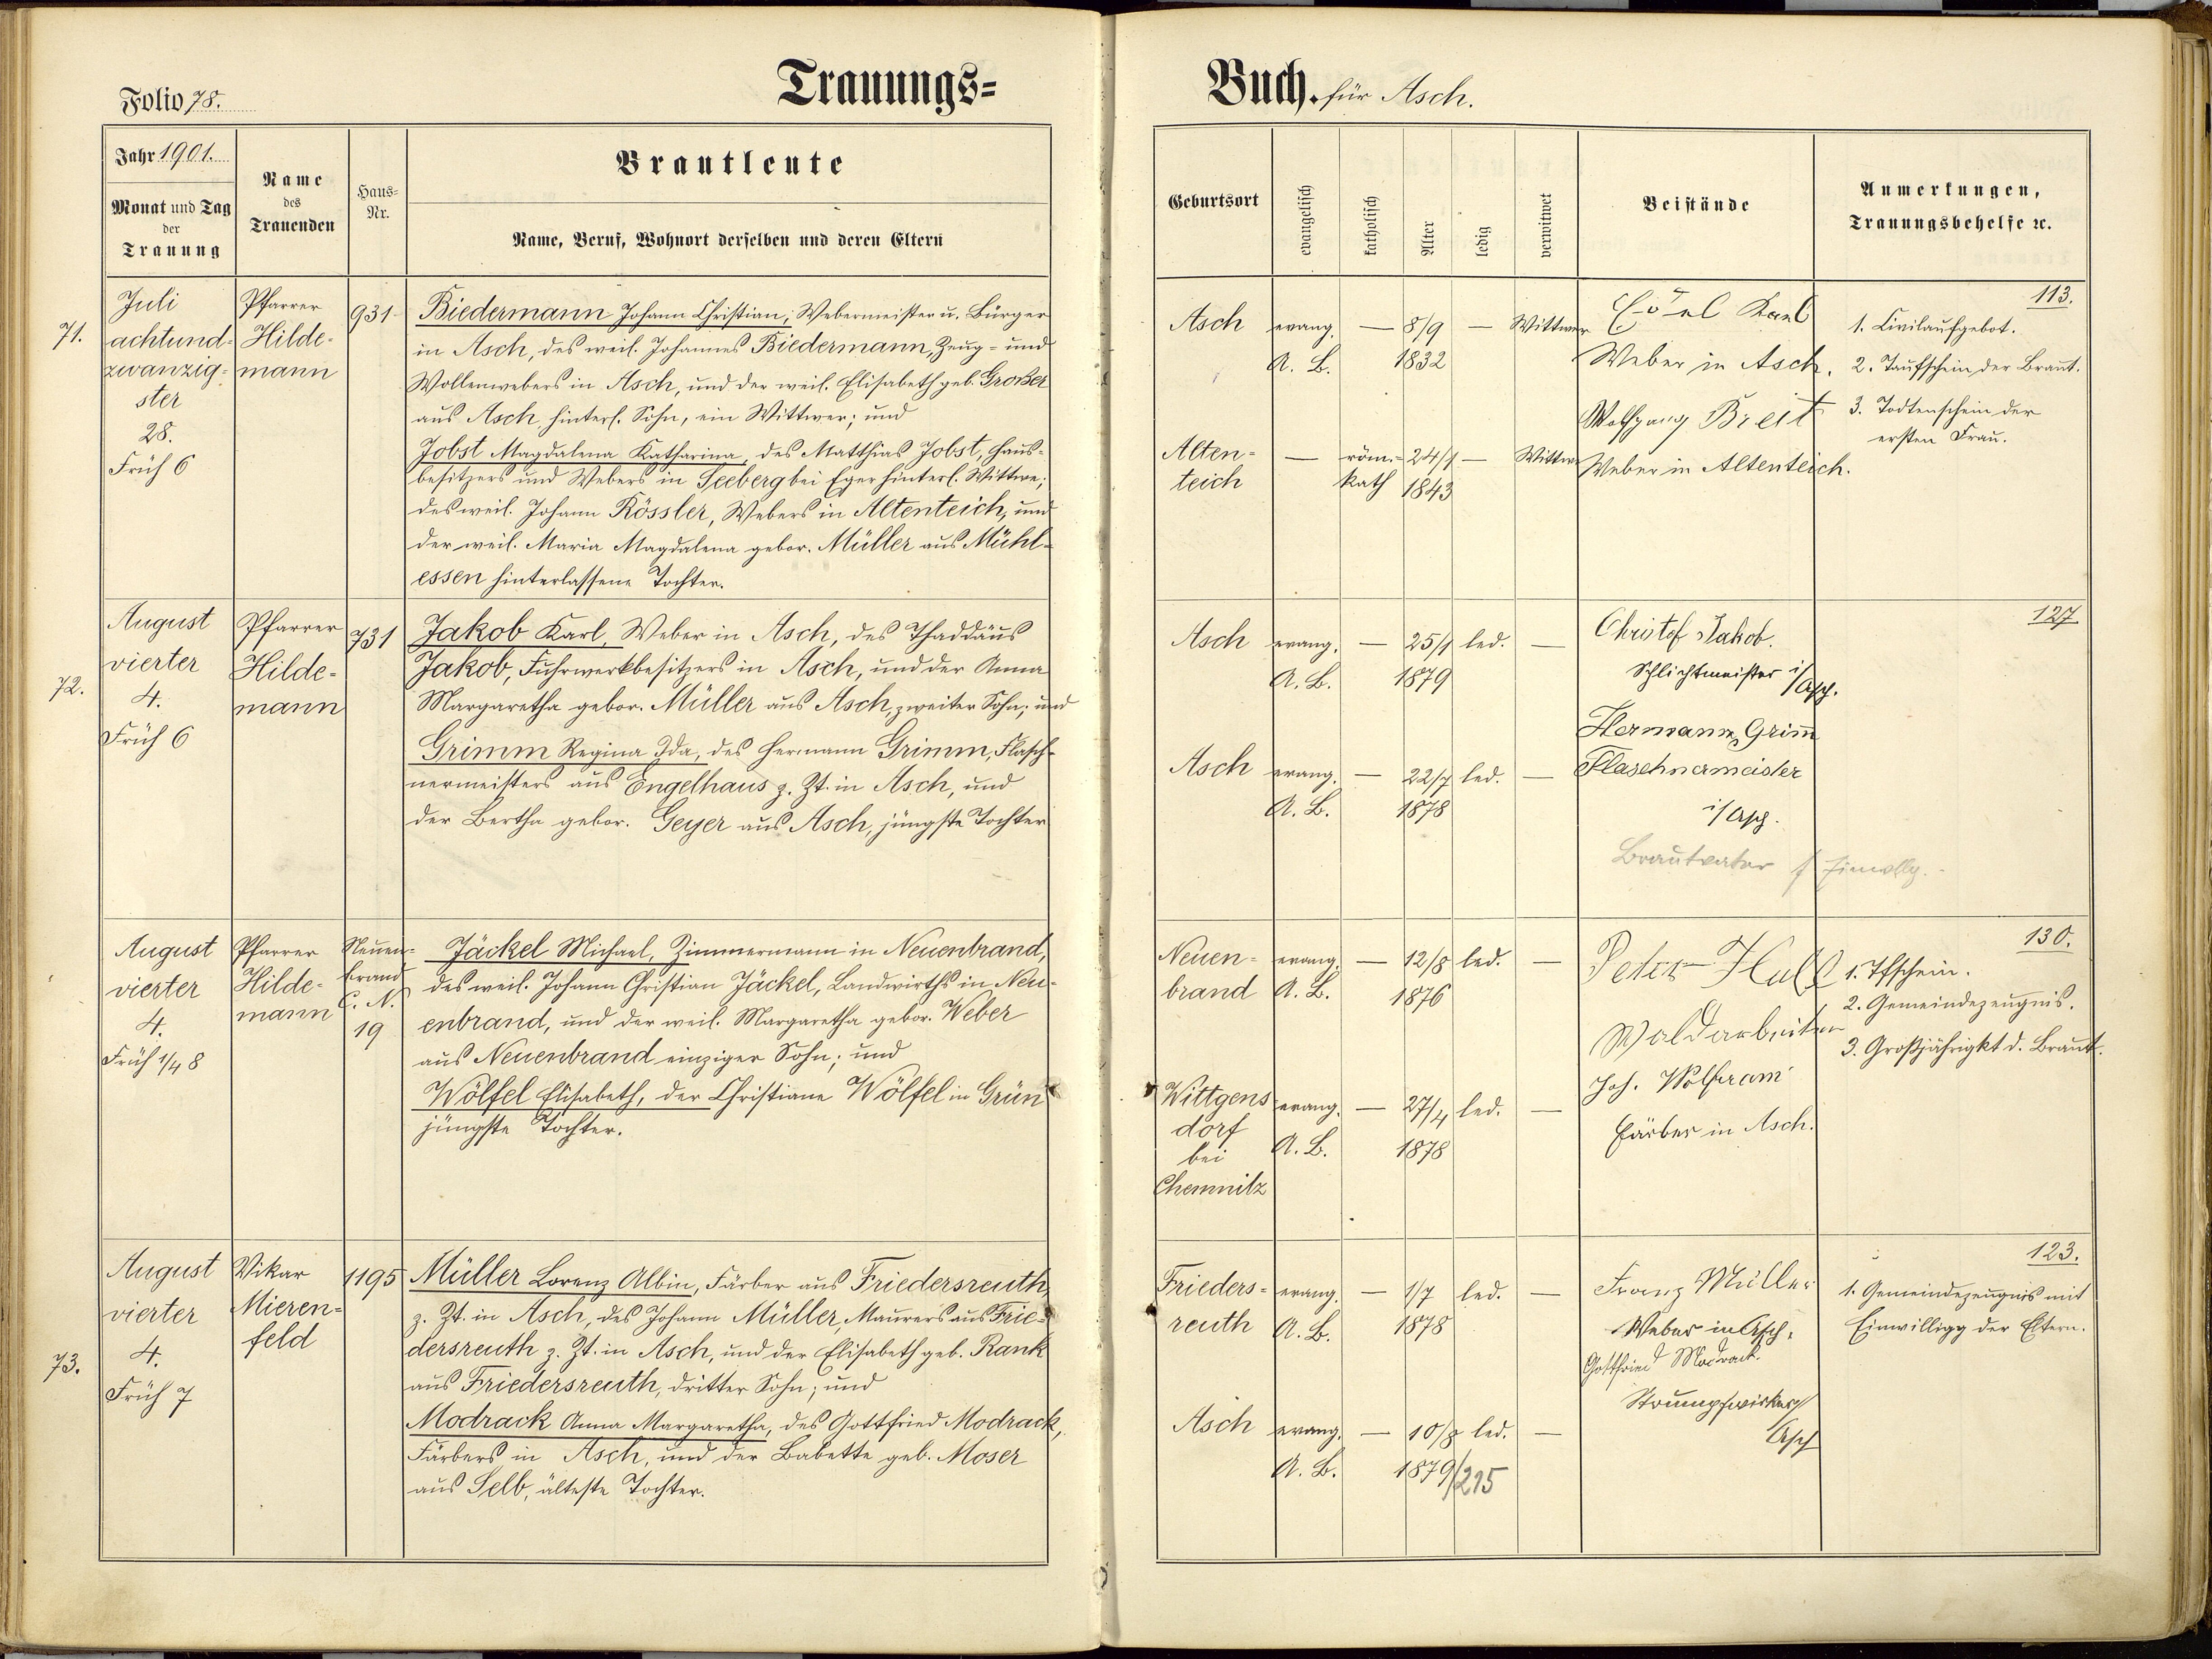 Folio 78.
Trauungs=
Jahr 1901.
Monat und Tag
der
Trauung
Name
des
Trauenden
Haus=
Nr.
Brautleute
Name, Beruf, Wohnort derselben und deren Eltern
71.
Juli
achtund-
zwanzig-
ster
28.
Früh 6
Pfarrer
Hilde-
mann
931
Biedermann Johann Christian, Webermeister u. Bürger
in Asch, des weil. Johannes Biedermann, Zeug- und
Wollenwebers in Asch, und der weil. Elisabeth geb. Großer
aus Asch hinterl. Sohn, ein Wittwer; und
Jobst Magdalena Katharina, des Matthias Jobst, Haus-
besitzers und Webers in Seeberg bei Eger hinterl. Wittwe;
des weil. Johann Rössler, Webers in Altenteich, und
der weil. Maria Magdalena gebor. Müller aus Mühl-
essen hinterlassene Tochter.
72.
August
vierter
4.
Früh 6
Pfarrer
Hilde-
mann
731
Jakob Karl, Weber in Asch, des Thaddäus
Jakob, Fuhrwerkbesitzers in Asch, und der Anna
Margaretha gebor. Müller aus Asch, zweiter Sohn; und
Grimm Regina Ida, des Hermann Grimm, Flasch-
nermeisters aus Engelhaus z. Zt. in Asch, und
der Bertha gebor. Geyer aus Asch, jüngste Tochter
August
vierter
4.
Früh 1/4 8
Pfarrer
Hilde-
mann
Neuen-
brand
C. N.
19
Jäckel Michael, Zimmermann in Neuenbrand,
des weil. Johann Christian Jäckel, Landwirths in Neu-
enbrand, und der weil. Margaretha gebor. Weber
aus Neuenbrand einziger Sohn; und
Wölfel Elisabeth, der Christiane Wölfel in Grün
jüngste Tochter.
73.
August
vierter
4.
Früh 7
Vikar
Mieren-
feld
1195
Müller Lorenz Albin, Färber aus Friedersreuth,
z. Zt. in Asch, des Johann Müller, Maurers aus Frie-
dersreuth z. Zt. in Asch, und der Elisabeth geb. Rank
aus Friedersreuth, dritter Sohn; und
Modrack Anna Margaretha, des Gottfried Modrack,
Färbers in Asch, und der Babette geb. Moser
aus Selb, älteste Tochter.
Buch. für Asch.
Geburtsort
evangelisch
katholisch
Alter
ledig
verwitwet
Beistände
Anmerkungen,
Trauungsbehelfe ꝛc.
Asch evang. — 8/9 — Wittwer
A. B. 1832
Alten- — röm.- 24/1 — Wittwe
teich kath 1843
Karl
Weber in Asch.
Wolfgang Breit
Weber in Altenteich.
113.
1. Civilaufgebot.
2. Taufschein der Braut.
3. Todtenschein der
ersten Frau.
Asch evang. — 25/1 led. —
A. B. 1879
Asch evang. — 22/7 led. —
A. B. 1878
Christof Jakob.
Schlichtmeister i/
Asch.
Hermann Grim̄
Flaschnermeister
i/Asch.
Brautvater
127
Neuen- evang. — 12/8 led. —
brand A. B. 1876
Wittgens evang. — 27/4 led. —
dorf A. B. 1878
bei
Chemnitz
Peter
Waldarbeiter
Joh. Wolfram
Färber in Asch.
130.
1. Tfschein.
2. Gemeindezeugnis.
3. Großjährigkt d. Braut.
Frieders- evang. — 1/7 led. —
reuth A. B. 1878
Asch evang. — 10/8 led. —
A. B. 1879/215
Franz Müller
Weber in Asch.
Gottfried Modrack.
Strumpfwirker
Asch
123.
1. Gemeindezeugnis mit
Einwilligg der Eltern.